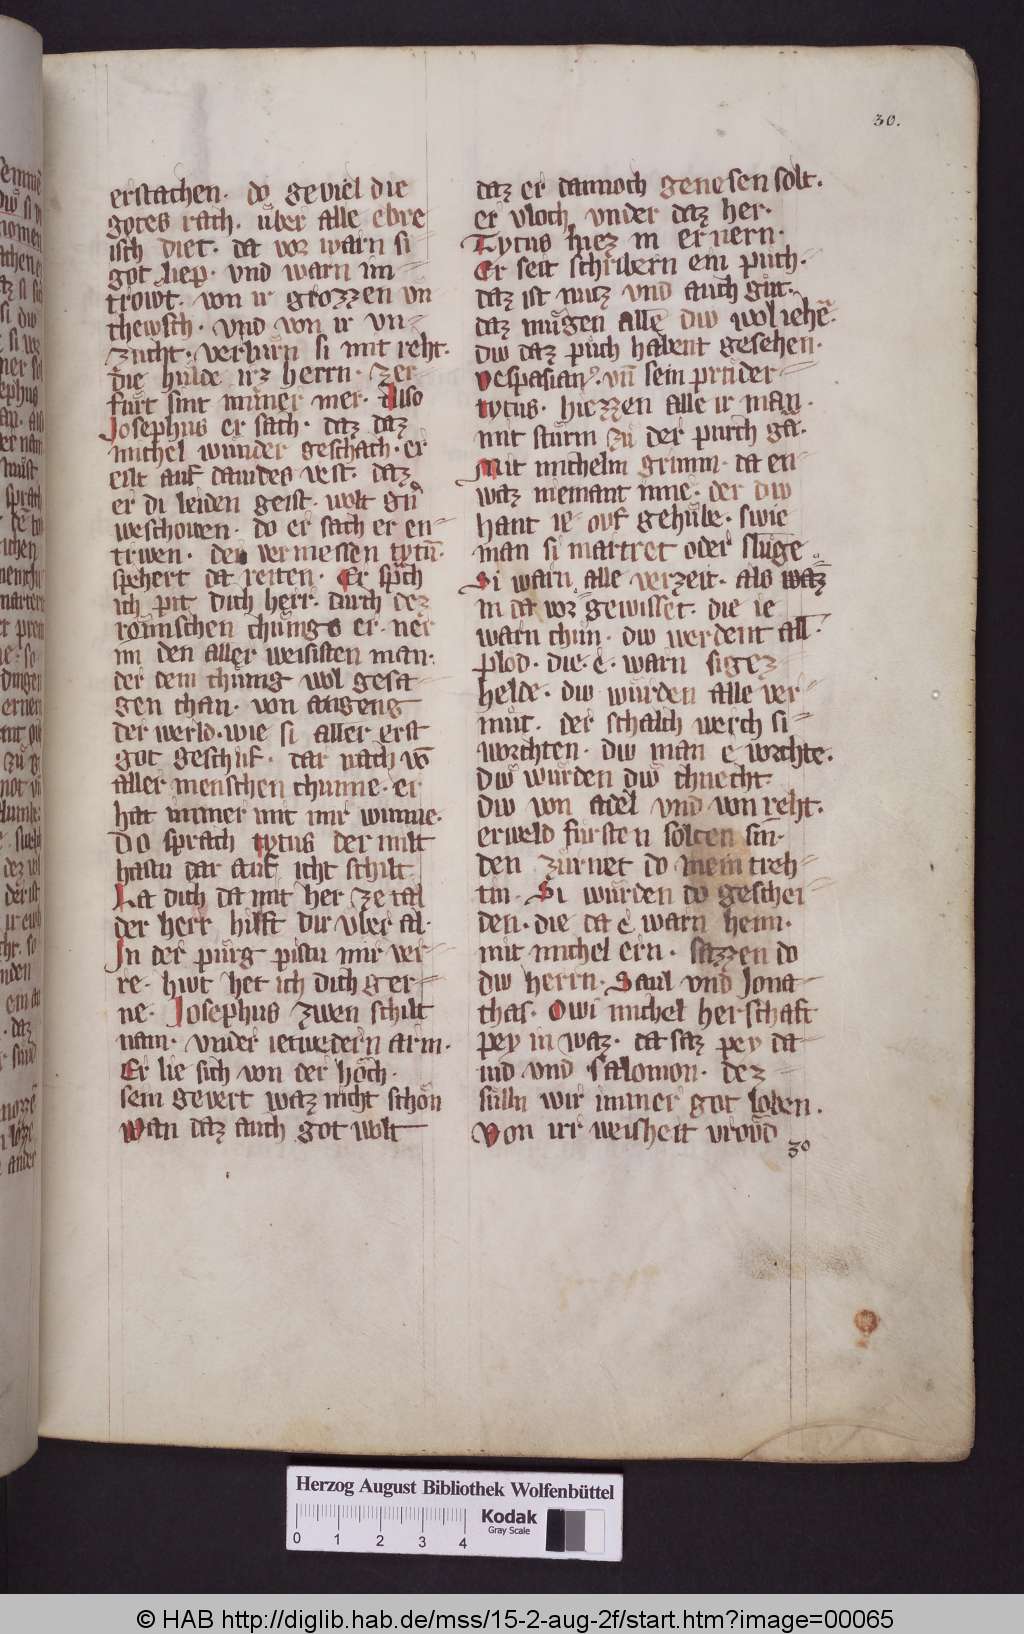 30.
erstachen. do geviel die
gotes rach. uͤber alle ebre
isch diet. da vor warn si
got liep. vnd warn im
trowt. von ir grozzen vn
chewsch. vnd von ir vn-
zucht. verlurn si mit reht.
die hulde irz herrn. zer-
furt sint immer mer. Also
Josephus er sach. daz daz
michel wunder geschach. er
eilt auf dauides vest. daz
er di leiden geist. wolt
weschowen. do er sach er en-
trwen. den vermessen tytū.
spehert da reiten. Er sp̄ch
ich pit dich herr. durch dez
roͤmischen chuͤnigs er. ner
mi den aller weisisten man.
der dem chuͤnig wol gesa-
gen chan. von angeng
der werld. wie si aller erst
got geschuf. dar nach vō
aller menschen chunne. er
hat immer mit mir wunne.
Do sprach tytus der milt
hastu dar auf icht schilt
La dich da mit her ze tal
der herr hilft dir vber al.
In der purg pistu mir ver-
re. hiwt het ich dich ger-
ne. Josephus zwen schilt
nam. vnder ietwedern arm.
Er lie sich von der hoͤch.
sein gevert waz nicht schoͤn
Wan daz auch got wolt
daz er dannoch genesen solt.
er vloch vnder daz her.
Tytus hiez in ernern.
Er seit schribern ein puch.
daz ist nutz vnd auch gut.
daz muͤgen alle diw wol iehē.
diw daz puͦch habent gesehen.
Vespasianꝰ. vn̄ sein pruͤder
tytus. hiezzen alle ir man.
mit sturm zu der purch gā.
Mit michelm grimm. da en-
waz niemant inne. der diw
hant ie ouf gehuͤbe. swie
man si martret oder sluͤge
Si warn alle verzeit. als waz
in da vor gewisset. die ie
warn chuͤn. diw werdent all.
ploͤd. die. e. warn sigez
helde. diw wurden alle ver-
muͤt. der schalch werch si
worchten. diw man e vorchte.
diw wurden diw chnecht.
diw von adel vnd von reht.
erweld fursten solten sin.
den zurnet do mein treh-
tin. Si wurden do geschei-
den. die da e warn heim.
mit michel ern. sazzen do
diw herrn. Saul vnd Jona-
thas. Owi michel herschaft
pey in waz. da saz pey da-
uid vnd Salomon. dez
suͤlln wir immer got loben.
Von irr weisheit vroͤud
30
Herzog August Bibliothek Wolfenbüttel
0 1 2 3 4
Kodak
Gray Scale
© HAB http://diglib.hab.de/mss/15-2-aug-2f/start.htm?image=00065